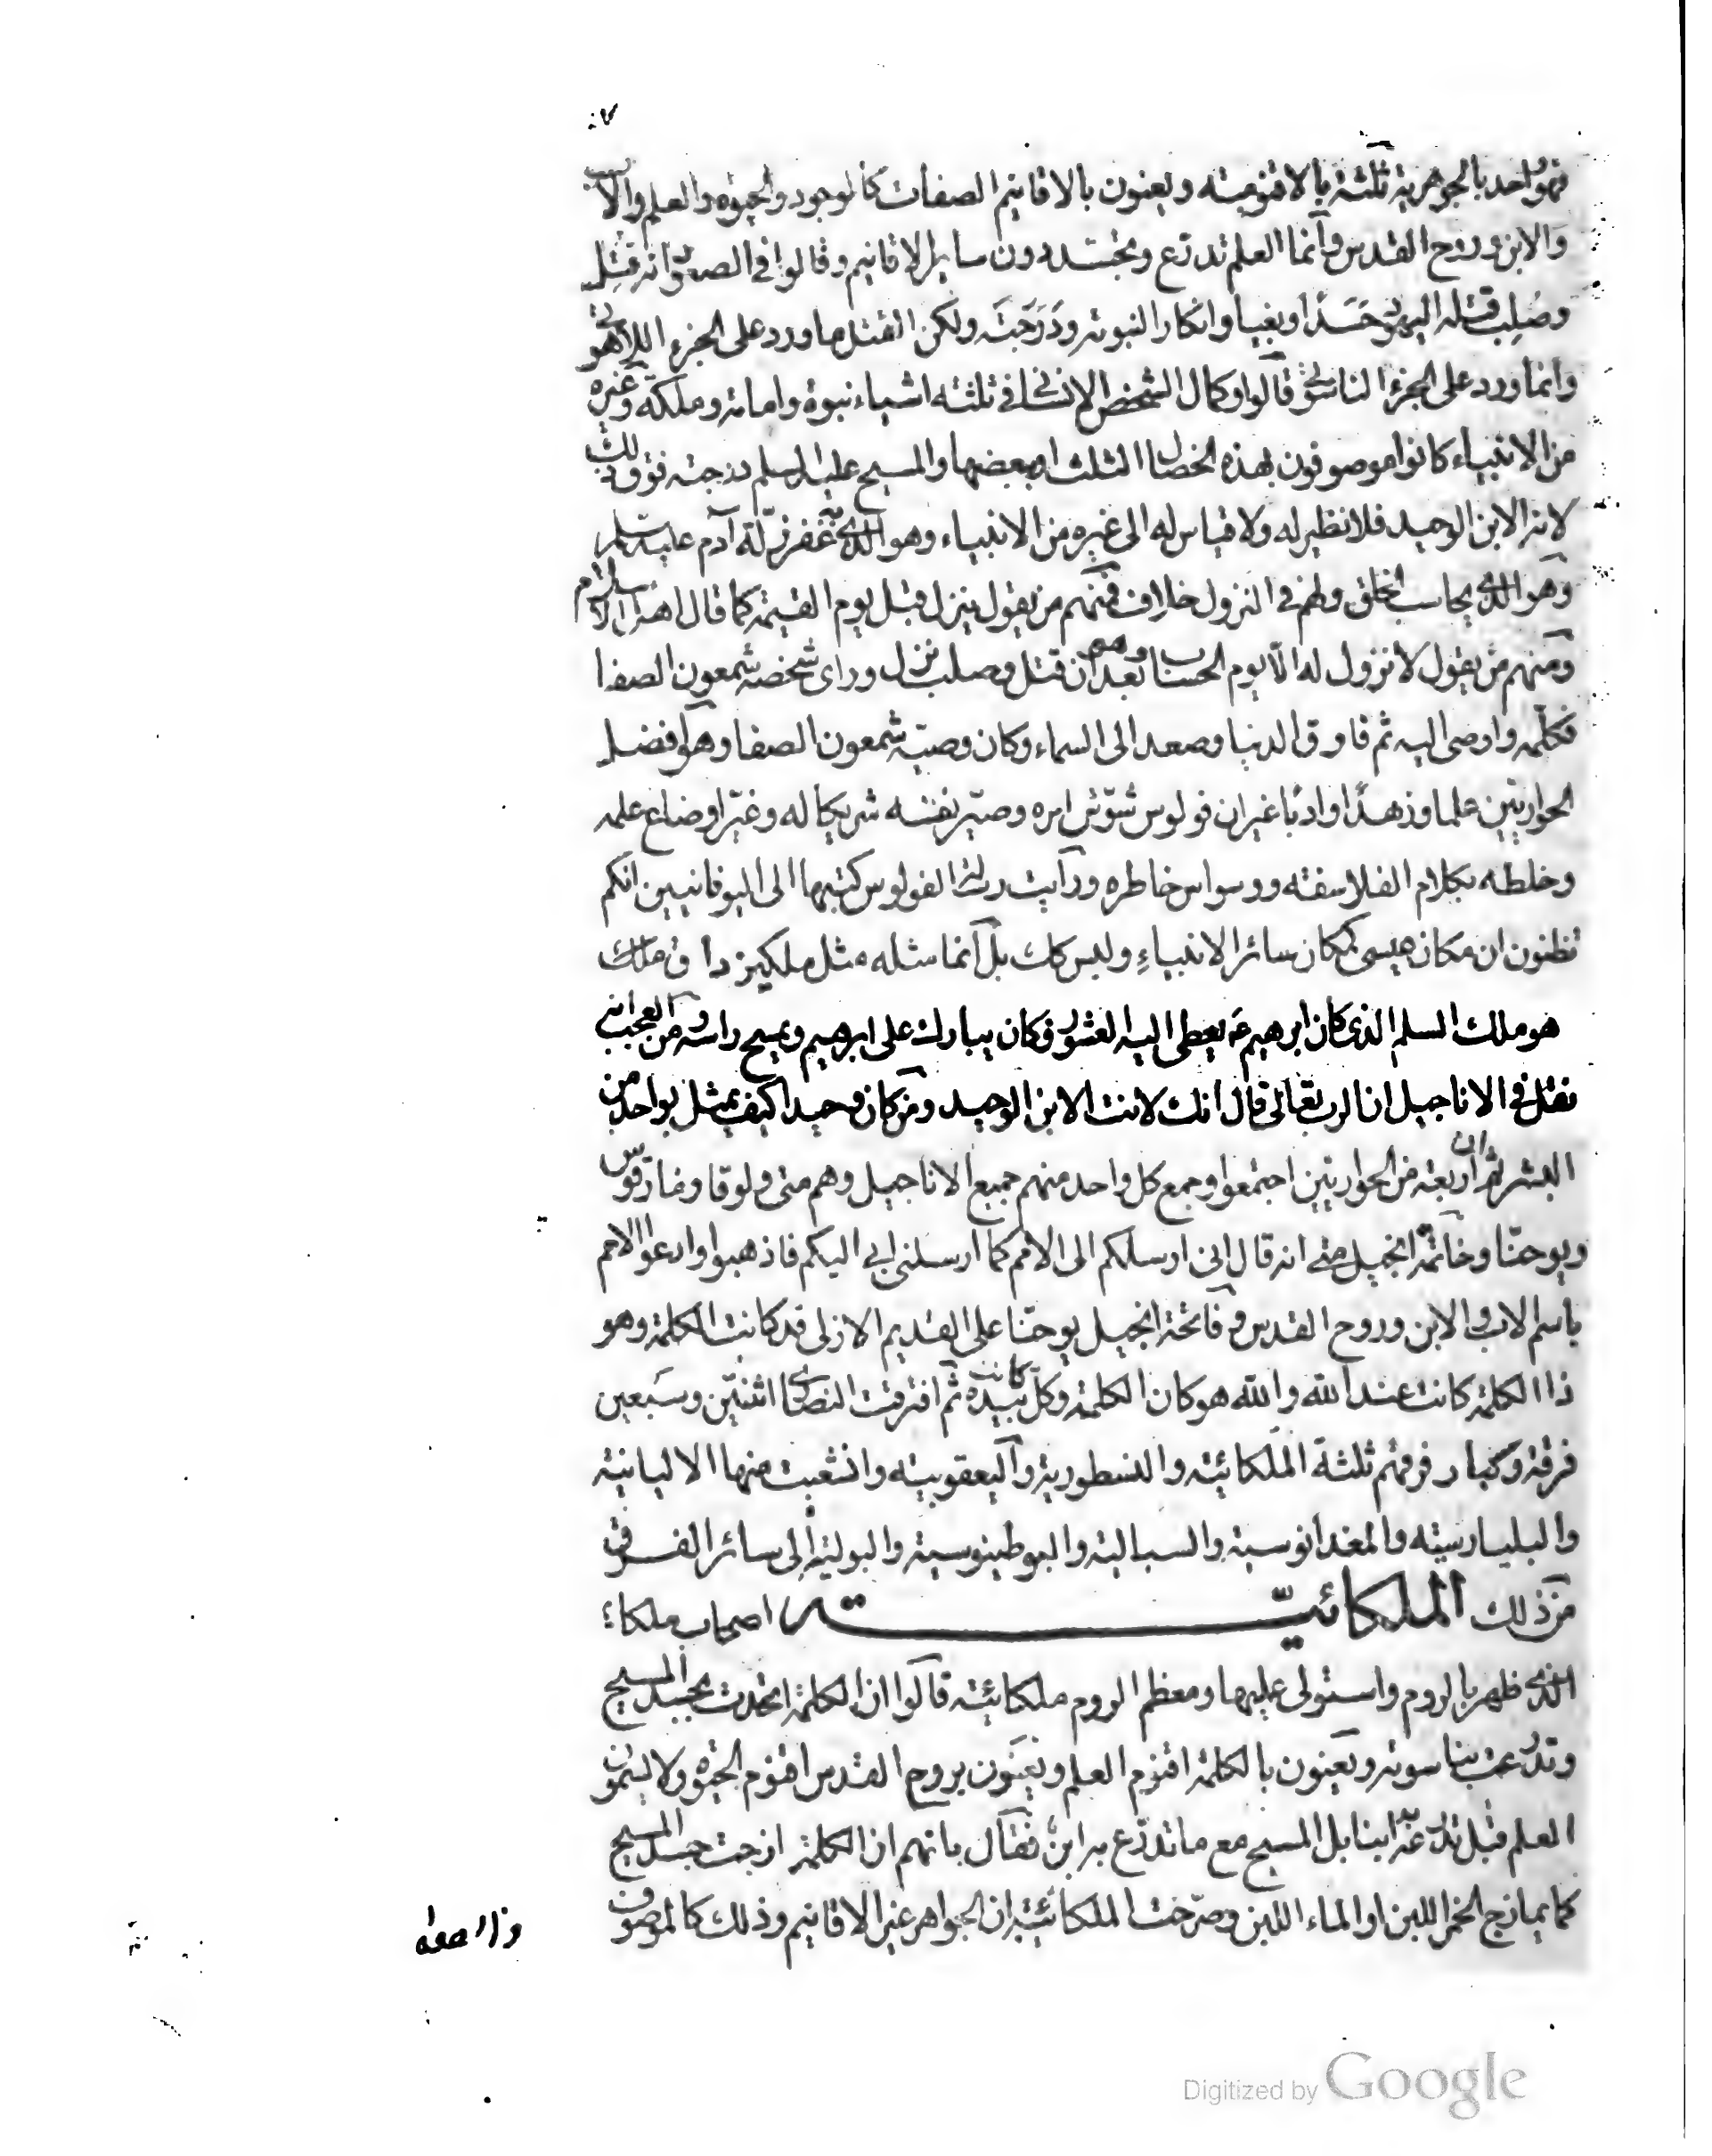 فهو واحد بالجوهرية ثلثة بالاقنومية ويعنون بالاقانيم الصفات كالوجود والحيوة والعلم والاب
والابن وروح القدس وانما العلم تدرع وتجسد دون ساير الاقانيم وقالوا في الصعود انه قتل
وصلب قتله اليهود حسدا وبغيا وانكارا لنبوته ودرجته ولكن القتل ما ورد على الجزء اللاهوتي
وانما ورد على الجزء الناسوتي قالوا وكمال الشخص الانساني في ثلثة اشياء نبوة وامامة وملكة وغيره
من الانبياء كانوا موصوفون بهذه الخصال الثلث او ببعضها والمسيح عليه السلم درجته فوق ذلك
لانه الابن الوحيد فلا نظير له ولا قياس له الى غيره من الانبياء وهو الذي به غفر زلة آدم عليه السلم
وهو الذي يحاسب الخلق ولهم في النزول خلاف فمنهم من يقول ينزل قبل يوم القيمة كما قال اهل الاسلام
ومنهم من يقول لا نزول له الا يوم الحساب وهو بعد ان قتل وصلب نزل وراى شخصه شمعون الصفا
فكلمه واوصى اليه ثم فارق الدنيا وصعد الى السماء وكان وصيه شمعون الصفا وهو افضل
الحواريين علما وزهدا وادبا غير ان فولوس شوش امره وصير نفسه شريكا له وغير اوضاع علمه
وخلطه بكلام الفلاسفة ووسواس خاطره ورايت رسالة لفولوس كتبها الى اليونانيين انكم
تظنون ان مكان عيسى كمكان سائر الانبياء وليس كك بل انما مثله مثل ملكيزداق ملك
هو ملك السلم الذي كان ابرهيم ع يعطى اليه العشور فكان يبارك على ابرهيم ويمسح راسه ومن العجب انه
نقل في الاناجيل ان الرب تعالى قال انك لانت الابن الوحيد ومن كان وحيدا كيف يمثل بواحد من
البشر ثم ان اربعة من الحواريين اجتمعوا وجمع كل واحد منهم جميع الاناجيل وهم متى ولوقا ومارقوس
ويوحنا وخاتمة انجيل متى انه قال انى ارسلكم الى الامم كما ارسلنى ابى اليكم فاذهبوا وادعوا الامم
باسم الاب والابن وروح القدس وفاتحة انجيل يوحنا على القديم الازلى قد كانت الكلمة وهو
ذا الكلمة كانت عند الله والله هو كان الكلمة وكل كانت بيده ثم افترقت النصارى اثنتين وسبعين
فرقة وكبار فرقهم ثلثة الملكائية والنسطورية واليعقوبية وانشعبت منها الاليانية
والبليارسية والمغدانوسية والسبالية والبوطينوسية والبولية الى سائر الفرق
من ذلك الملكائية اصحاب ملكاء
الذي ظهر بالروم واستولى عليها ومعظم الروم ملكائية قالوا ان الكلمة اتحدت بجسد المسيح
وتدرعت بناسوته ويعنون بالكلمة اقنوم العلم ويعنون بروح القدس اقنوم الحيوة ولا يسمون
العلم قبل تدرعه به ابنا بل المسيح مع ما تدرع به ابن فقال بانهم ان الكلمة ازجت جسد المسيح
كما يمازج الخمر اللبن او الماء اللبن وصرحت الملكائية بان الجواهر غير الاقانيم وذلك كالموصوف
والصفه
Digitized by Google